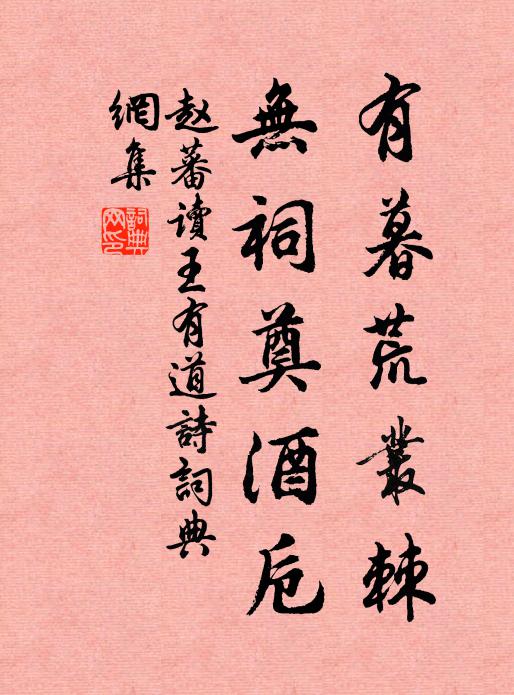 有暮荒叢棘
無祠奠酒卮
赵蕃讀王有道詩詞典
網集
詞典網印